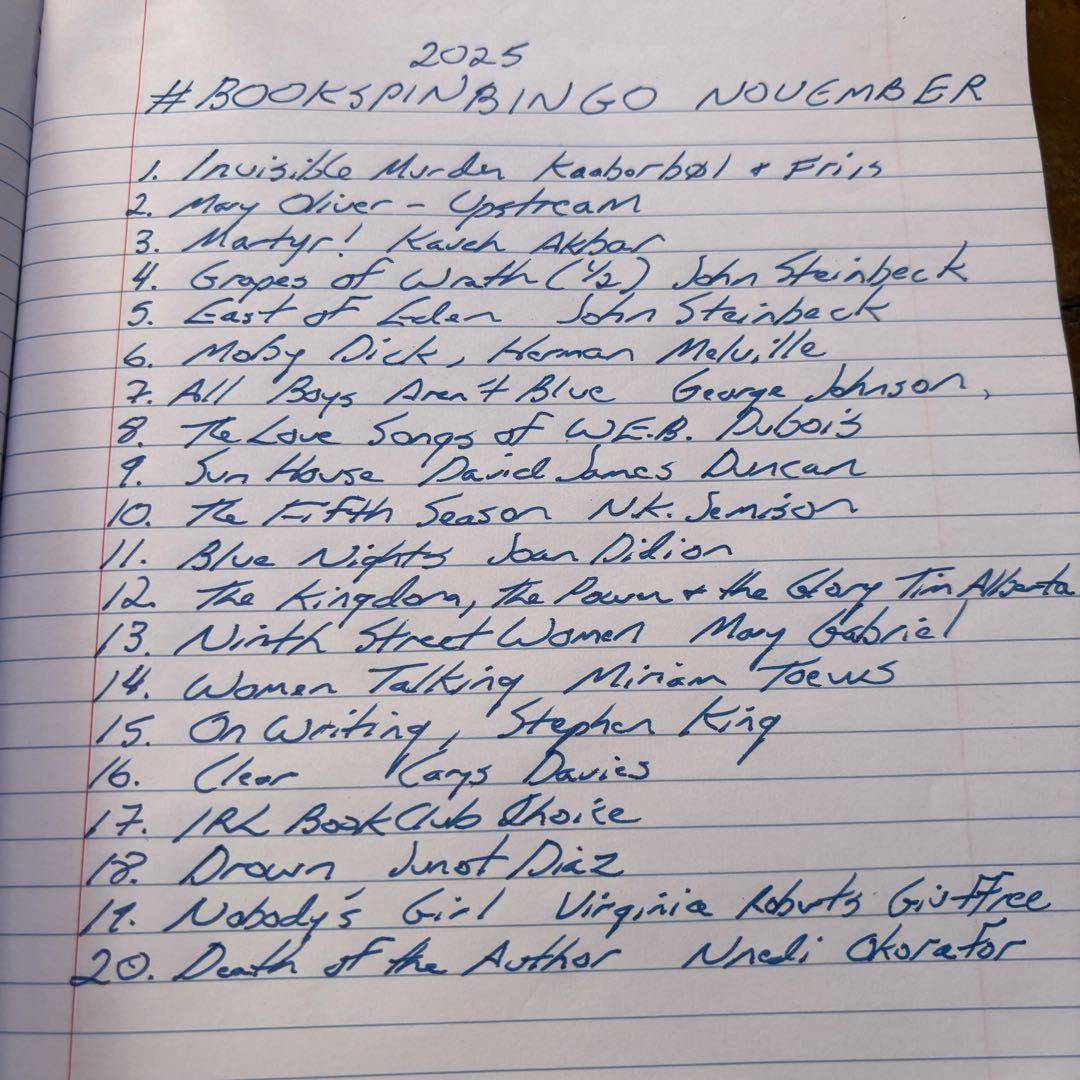 2025
#BOOKSPINBINGO NOVEMBER
1. Invisible Murder Kaaborbøl + Friis
2. Mary Oliver - Upstream
3. Martyr! Kaveh Akbar
4. Grapes of Wrath (1/2) John Steinbeck
5. East of Eden John Steinbeck
6. Moby Dick, Herman Melville
7. All Boys Aren't Blue George Johnson,
8. The Love Songs of W.E.B. Dubois
9. Sun House David James Duncan
10. The Fifth Season N.K. Jemison
11. Blue Nights Joan Didion
12. The Kingdom, the Power + the Glory Tim Alberta
13. Ninth Street Women Mary Gabriel
14. Women Talking Miriam Toews
15. On Writing, Stephen King
16. Clear Carys Davies
17. IRL Book Club Choice
18. Drown Junot Diaz
19. Nobody's Girl Virginia Roberts Giuffree
20. Death of the Author Nnedi Okorafor